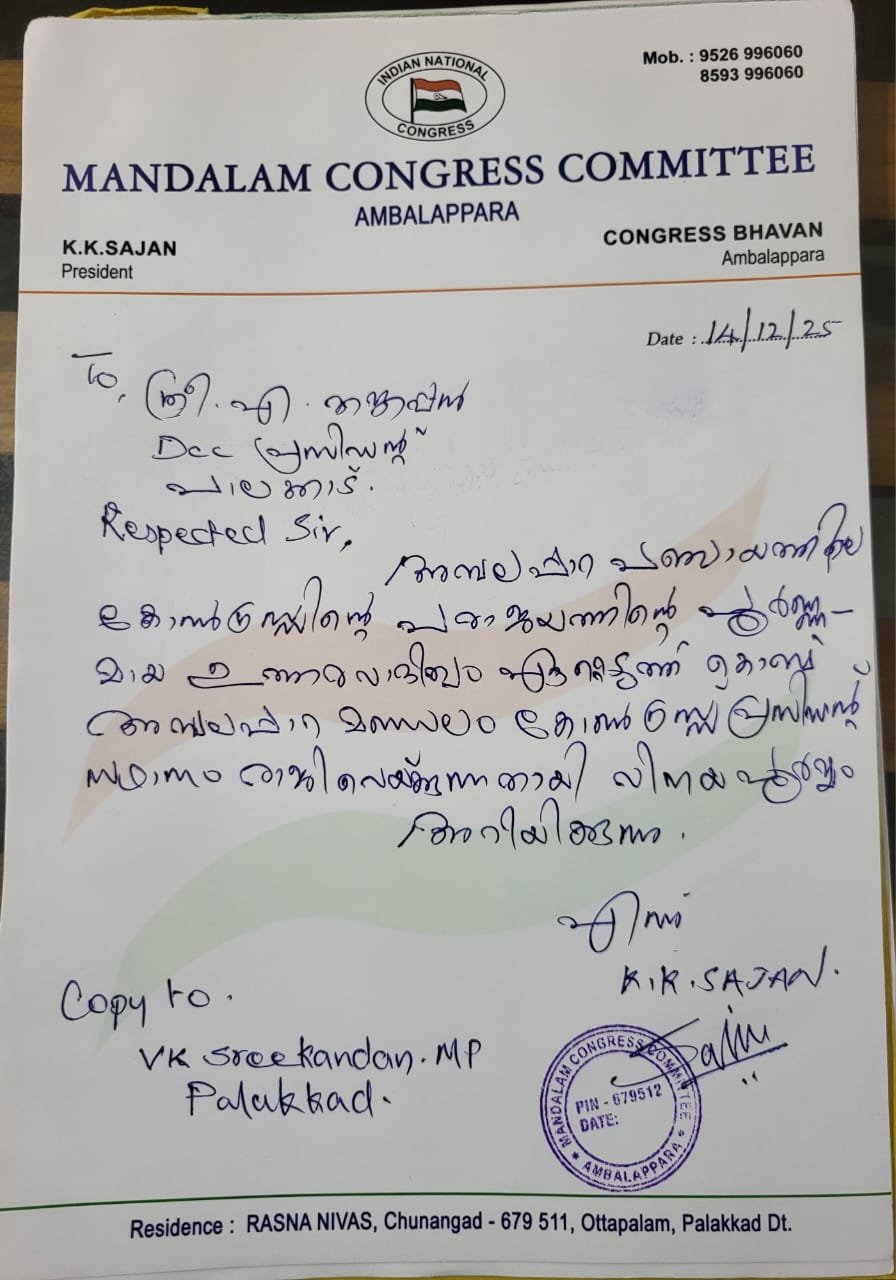 INDIAN NATIONAL
CONGRESS
Mob. : 9526 996060
8593 996060
MANDALAM CONGRESS COMMITTEE
AMBALAPPARA
K.K.SAJAN
President
CONGRESS BHAVAN
Ambalappara
Date : 14/12/25
To,
ശ്രീ. എ. തങ്കപ്പൻ
Dcc പ്രസിഡന്റ്
പാലക്കാട്.
Respected Sir,
അമ്പലപ്പാറ പഞ്ചായത്തിലെ
കോൺഗ്രസ്സിന്റെ പരാജയത്തിന്റെ പൂർണ്ണ-
മായ ഉത്തരവാദിത്വം ഏറ്റെടുത്ത് കൊണ്ട്
അമ്പലപ്പാറ മണ്ഡലം കോൺഗ്രസ്സ് പ്രസിഡന്റ്
സ്ഥാനം രാജിവെയ്ക്കുന്നതായി വിനയപൂർവ്വം
അറിയിക്കുന്നു.
എന്ന്
K.K.SAJAN.
Saju
Copy to.
VK Sreekandan. MP
Palakkad.
MANDALAM CONGRESS COMMITTEE
PIN - 679512
DATE:
* AMBALAPPARA *
Residence : RASNA NIVAS, Chunangad - 679 511, Ottapalam, Palakkad Dt.